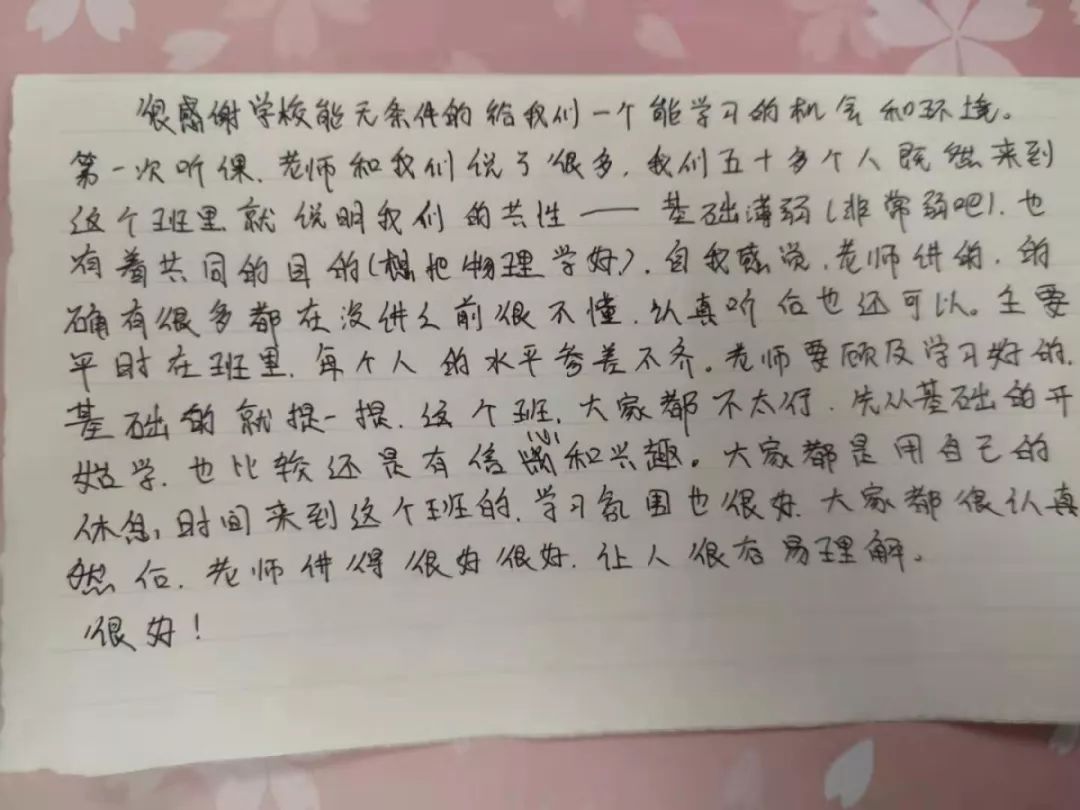 很感谢学校能无条件的给我们一个能学习的机会和环境。
第一次听课，老师和我们说了很多，我们五十多个人既然来到
这个班里就说明我们的共性——基础薄弱(非常弱吧)，也
有着共同的目的(想把物理学好)，自我感觉，老师讲的，的
确有很多都在没讲之前很不懂，认真听后也还可以。主要
平时在班里，每个人的水平参差不齐。老师要顾及学习好的，
基础的就提一提，这个班，大家都不太行，先从基础的开
始学，也比较还是有信心和兴趣。大家都是用自己的
休息，时间来到这个班的，学习氛围也很好，大家都很认真
然后，老师讲得很好很好，让人很容易理解。
很好！